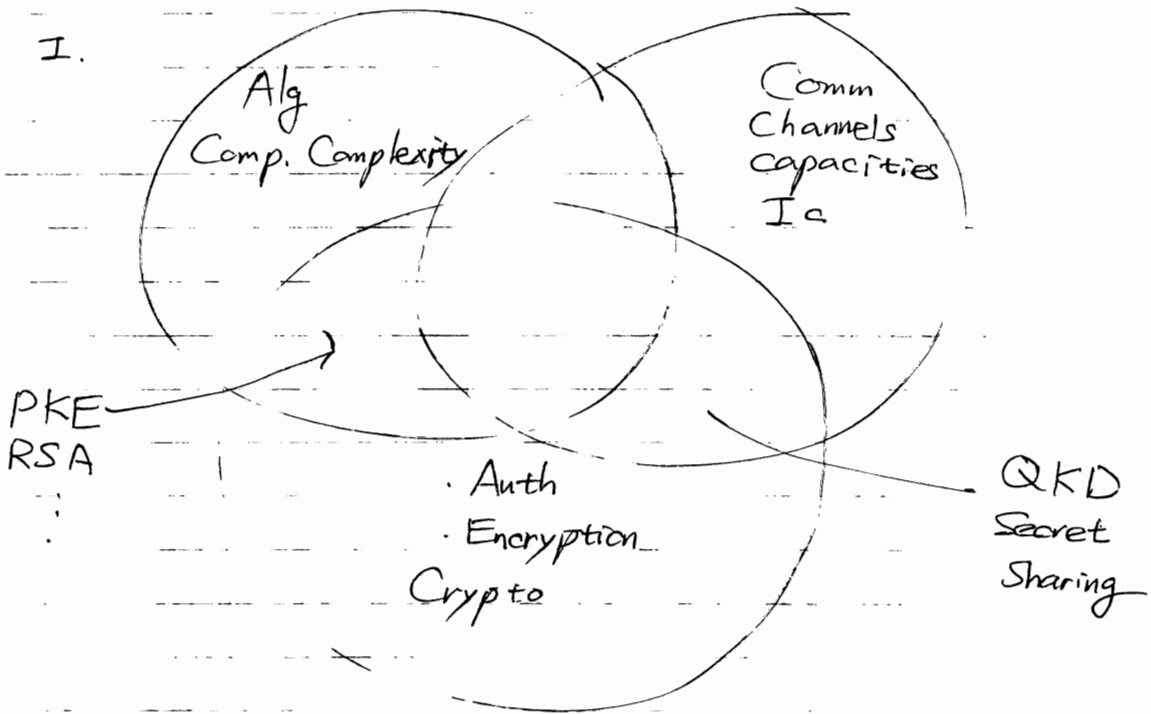 I.
Alg
Comp. Complexity
Comm
Channels
Capacities
Ic
PKE
RSA
⋮
· Auth
· Encryption
Crypto
QKD
Secret
Sharing